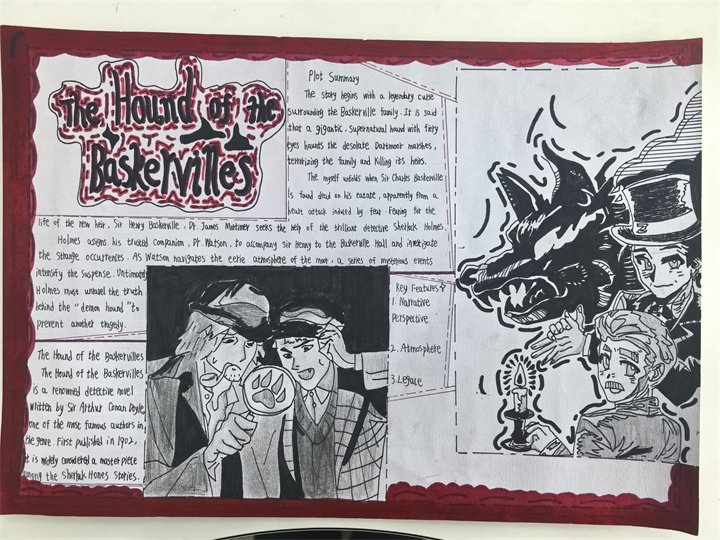 The Hound of the
Baskervilles
Plot Summary
The story begins with a legendary curse
surrounding the Baskerville family. It is said
that a gigantic, supernatural hound with fiery
eyes haunts the desolate Dartmoor marshes,
terrorizing the family and killing its heirs.
The myself unfolds when Sir Charles Baskerville
is found dead on his eatate, apparently from a
heart attack induced by fear. Fearing for the
life of the new heir, Sir Henry Baskerville, Dr. James Mortimer seeks the help of the brilliant detective Sherlock Holmes.
Holmes assigns his trusted companion, Dr. Watson, to acompany sir henry to the Baskerville Hall and investigate
the strange occurrences. As Watson navigates the eerie atmosphere of the moor, a series of mysterious events
intensify the suspense. Untimately
Holmes must unravel the truth
behind the "demon hound" to
prevent another tragedy.
The Hound of the Baskervilles
The Hound of the Baskervilles
is a renowned detective novel
written by Sir Arthur Conan Doyle,
one of the most famous authors in
the genre. First published in 1902,
it is widely considered a masterpiece
among the Sherlock Homes Stories.
Key Features
1. Narrative
Perspective
2. Atmosphere
3. Legase